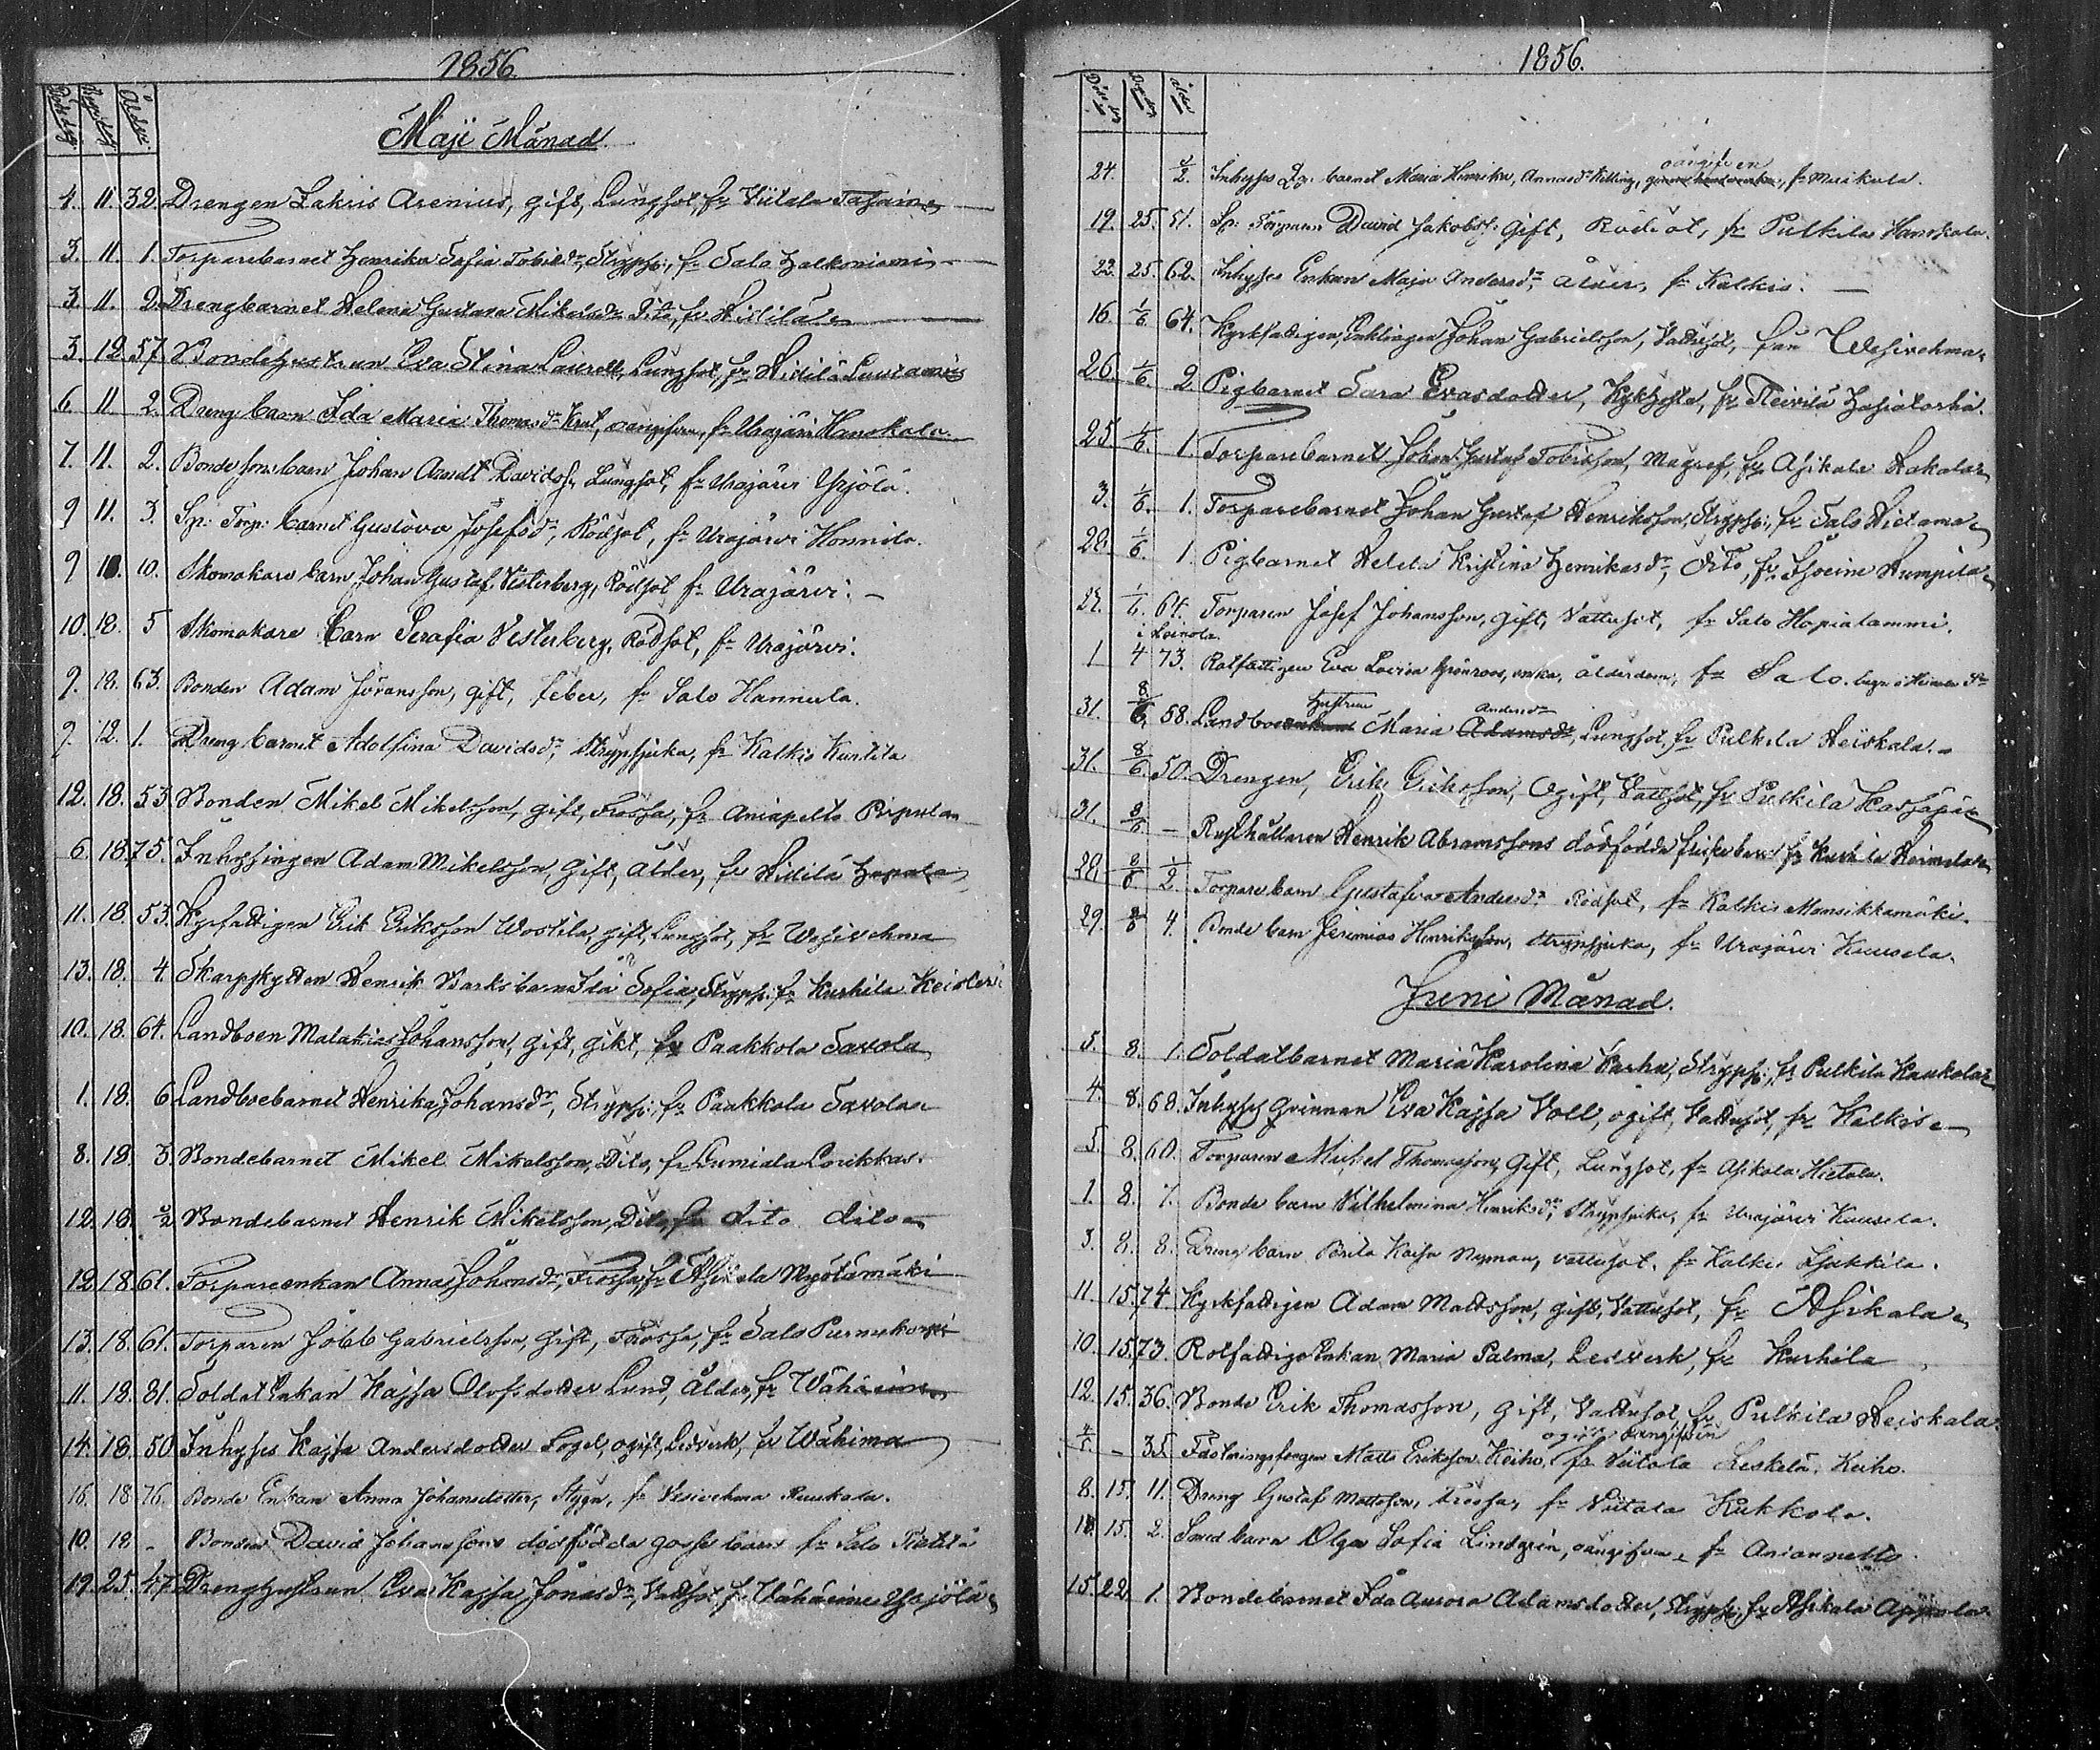 1856
Döds dag Begr: dag Ålder.
Maji Månad
4. 11. 32. Drengen Zakris Arenius, gift, Lungsot, fr Viitala
3. 11. 1. Torparebarnet Henrika Sofia Tobiedr, Strypsj:, fr Salo Halkoniemi
3. 11. 2. Drengbarnet Helena Gustava Mikelsdr Dito, fr Hillilä
3. 12 57. Bondehustrun Eva Stina Laurell, Lungsot, fr Hillilä
6. 11 2. Dreng barn Ida Maria Thomasdr oangifven, fr Urajärvi Hanskala
7. 11. 2. Bondesons barn Johan Arvidt Davidss, Lungsot, fr Urajärvi Yrjölä.
9 11. 3. Sp: Torp: barnet Gustava Josefsdr, Rödsot, fr Urajärvi Honnila.
9 18. 10. Skomakare barn Johan Gustaf Vesterberg, Rödsot fr Urajärvi. –
10. 18. 5 Skomakare barn Serafia Vesterberg, Rödsot, fr Urajärvi.
9. 18. 63. Bonden Adam Göransson, gift, feber, fr Salo Hannula.
9. 12. 1. Dreng barnet Adolfina Davidsdr, Strypsjuka, fr Kalkis Kurtila
12. 18. 53. Bonden Mikel Mikelsson, gift, Frossa, fr Aniapelto
6. 18. 75. Inhysingen Adam Mikelsson, gift, ålder, fr Hillilä
11. 18. 53. Erik Eriksson Wostila, gift, Lungsot, fr Wesivehma
13. 18. 4. Skarpskytten Henrik barn Ida Sofia, Strypsj. fr Kurhila Keisleri
10. 18. 64. Landboen Malakias Johansson, gift, gikt, fr Paakkola Savola
1. 18. 6 Landbobarnet Henrika Johansdr, Strypsj:, fr Paakkola Savola
8. 18. 3. Bondebarnet Mikel Mikelsson, Dito, fr
12. 18. Bondebarnet Henrik Mikelsson, Dito, fr dito dito
12. 18. 61. Torpareenkan Anna Johansdr, Frossa, fr Asikala
13. 18. 61. Torparen Jobb Gabrielsson, gift, Frossa, fr Salo
11. 18. 81. Soldat Enkan Kajsa Olofsdotter Lund, Ålder, fr Wähäeine
14. 18. 50. Inhyses Kajsa Andersdotter Fogel, ogift, Ledverk, fr Wähimaa
16. 18 76. Bonde Enkan Anna Johansdotter, Stygn, fr Vesivehma
10. 18 – Bonden David Johanssons dödfödda gosse barn fr Salo
19. 25. 47. Drenghustrun Eva Kajsa Jonasdr, Vattsot, fr Wähäeine Yrjölä
1856.
Döds dag Begr: dag Ålder
oangifven
24. Inhyses barnet Maria Henrika, Annasdr Killing, fr Mustkula.
19. 25. 51. Sp: Torparen David Jakobss. gift, Rödsot, fr Pulkila Hanskala.
22. 25. 62. Inhyses Enkan Maja Andersdr, ålder, fr Kalkis. –
16. 1/6 64. Kyrkfattigen, Enklingen Johan Gabrielsson, Vattusot, från Wesivehma
26. 1/6. 2. Pigbarnet Sara Evasdotter, Kikhosta, fr
25. 1/6. 1. Torparebarnet Johan Gustaf Tobisson, Magref, fr Asikala Hakala
3. 1/6. 1. Torparebarnet Johan Gustaf Henriksson, Strypsj:, fr Salo Hietama
28. 1/6. 1 Pigbarnet Helena Kristina Henrikasdr, Dito, fr
27. 1/6. 64. Torparen Josef Johansson, gift, Vattusot, fr Salo Hopialammi.
i Leinola
1 4 73. Rotfattigen Eva Lovisa Grönroos, enka, ålderdom, fr Salo.
Hustrun Andersdr
31. 8/6. 58. Landboens Maria Adamsdr, Lungsot, fr Pulkila Heiskala. –
31. 8/6. 50. Drengen, Erik Eriksson, Ogift, Vattsot, fr Pulkila
31. 8/6 – Rusthållaren Henrik Abramssons dödfödda flickebarn fr Kurhila
28. 8/6 1/2. Torpare barn Gustafva Andersdr, Rödsot, fr Kalkis Mansikkamäki.
29. 8/6 4. Bonde barn Jeremias Henriksson, Strypsjuka, fr Urajärvi Kuusela.
Juni Månad.
5. 8. 1. Soldatbarnet Maria Karolina Karhu, Strypsj:, fr Pulkila Kaukola
4. 8. 68. Inhyses qvinnan Eva Kajsa Voll, ogift, Vattusot, fr Kalkis
5. 8. 60. Torparen Mickel Thomasson, Gift, Lungsot, fr Asikala Hietala.
1. 8. 7. Bonde barn Vilhelmina Henriksdr, Strypsjuka, fr Urajärvi Kuusela.
3. 8. 8. Dreng barn Brita Kaisa Nyman, vattusot, fr Kalkis
11. 15. 74. Kyrkfattigen Adam Mattsson, gift, Vattusot, fr Asikala
10. 15. 73. Rotfattige Enkan Maria Palma, Ledverk, fr Kurhila
12. 15. 36. Bonde Erik Thomasson, gift, Vattusot, fr Pulkila Heiskala.
ogift oangifven
– 35. Matts Eriksson Keiho, fr Viitala Leskelä, Keiho.
8. 15. 11. Dreng Gustaf Mattsson, frossa, fr Viitala Kukkola.
15. 2. barn Olga Sofia Lindgrén, oangifven, fr Anianpelto.
15. 22. 1. Bondebarnet Ida Aurora Adamsdotter, Strypsj:, fr Asikala